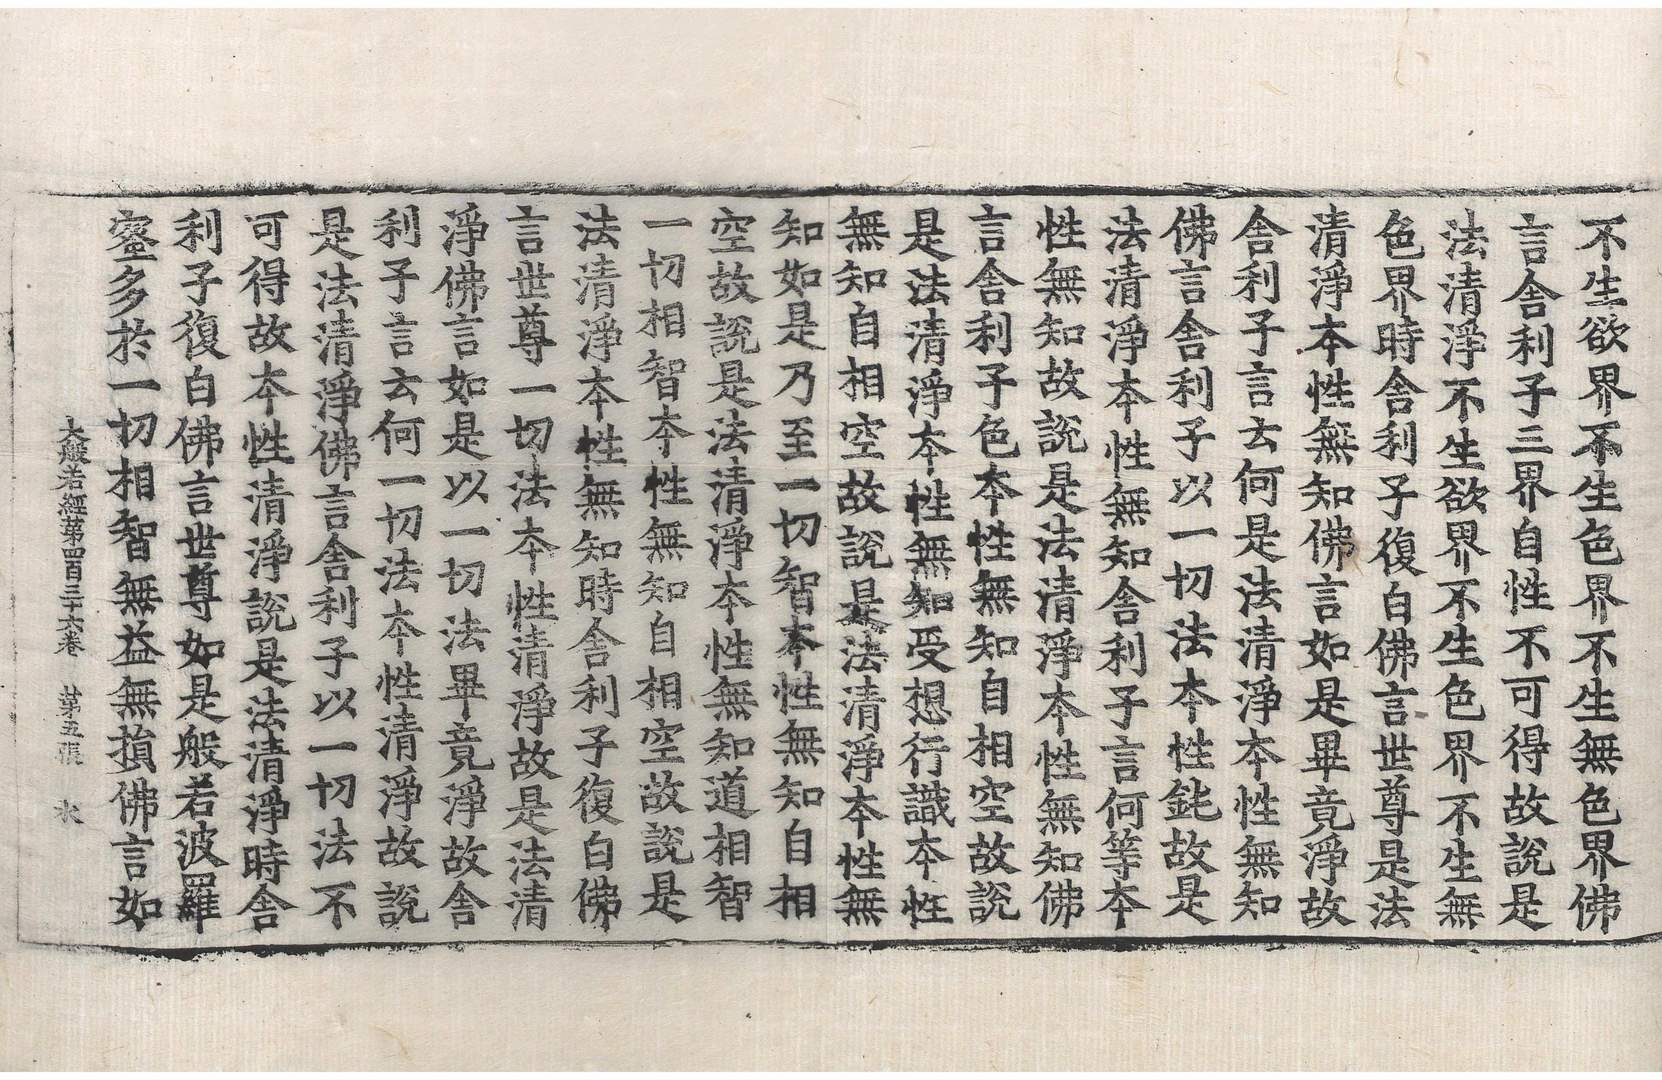 不生欲界不生色界不生無色界佛
言舎利子三界自性不可得故說是
法清淨不生欲界不生色界不生無
色界時舎利子復白佛言世尊是法
清淨本性無知佛言如是畢竟淨故
舎利子言云何是法清淨本性無知
佛言舎利子以一切法本性鈍故是
法清淨本性無知舎利子言何等本
性無知故說是法清淨本性無知佛
言舎利子色本性無知自相空故說
是法清淨本性無知受想行識本性
無知自相空故說是法清淨本性無
知如是乃至一切智本性無知自相
空故說是法清淨本性無知道相智
一切相智本性無知自相空故說是
法清淨本性無知時舎利子復白佛
言世尊一切法本性清淨故是法清
淨佛言如是以一切法畢竟淨故舎
利子言云何一切法本性清淨故說
是法清淨佛言舎利子以一切法不
可得故本性清淨說是法清淨時舎
利子復白佛言世尊如是般若波羅
蜜多於一切相智無益無損佛言如
大般若經第四百三十六卷 第五張 水